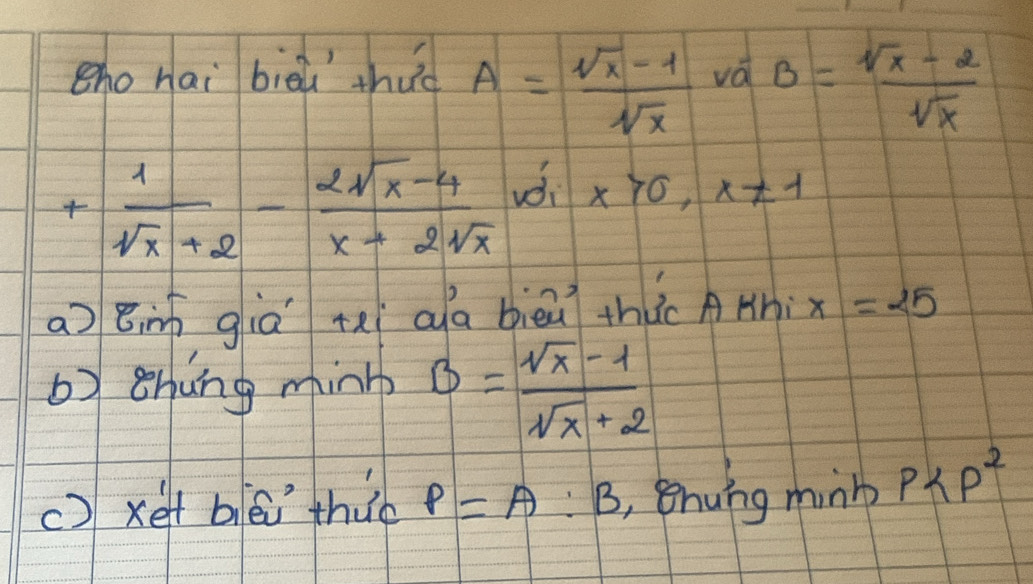 Cho hai biểu thức A = \frac{\sqrt{x} - 1}{\sqrt{x}} và B = \frac{\sqrt{x} - 2}{\sqrt{x}}
+ \frac{1}{\sqrt{x} + 2} - \frac{2\sqrt{x} - 4}{x + 2\sqrt{x}} với x > 0, x ≠ 1
a) Tính giá trị của biểu thức A khi x = 25
b) Chứng minh B = \frac{\sqrt{x} - 1}{\sqrt{x} + 2}
c) xét biểu thức P = A : B, Chứng minh P < P²